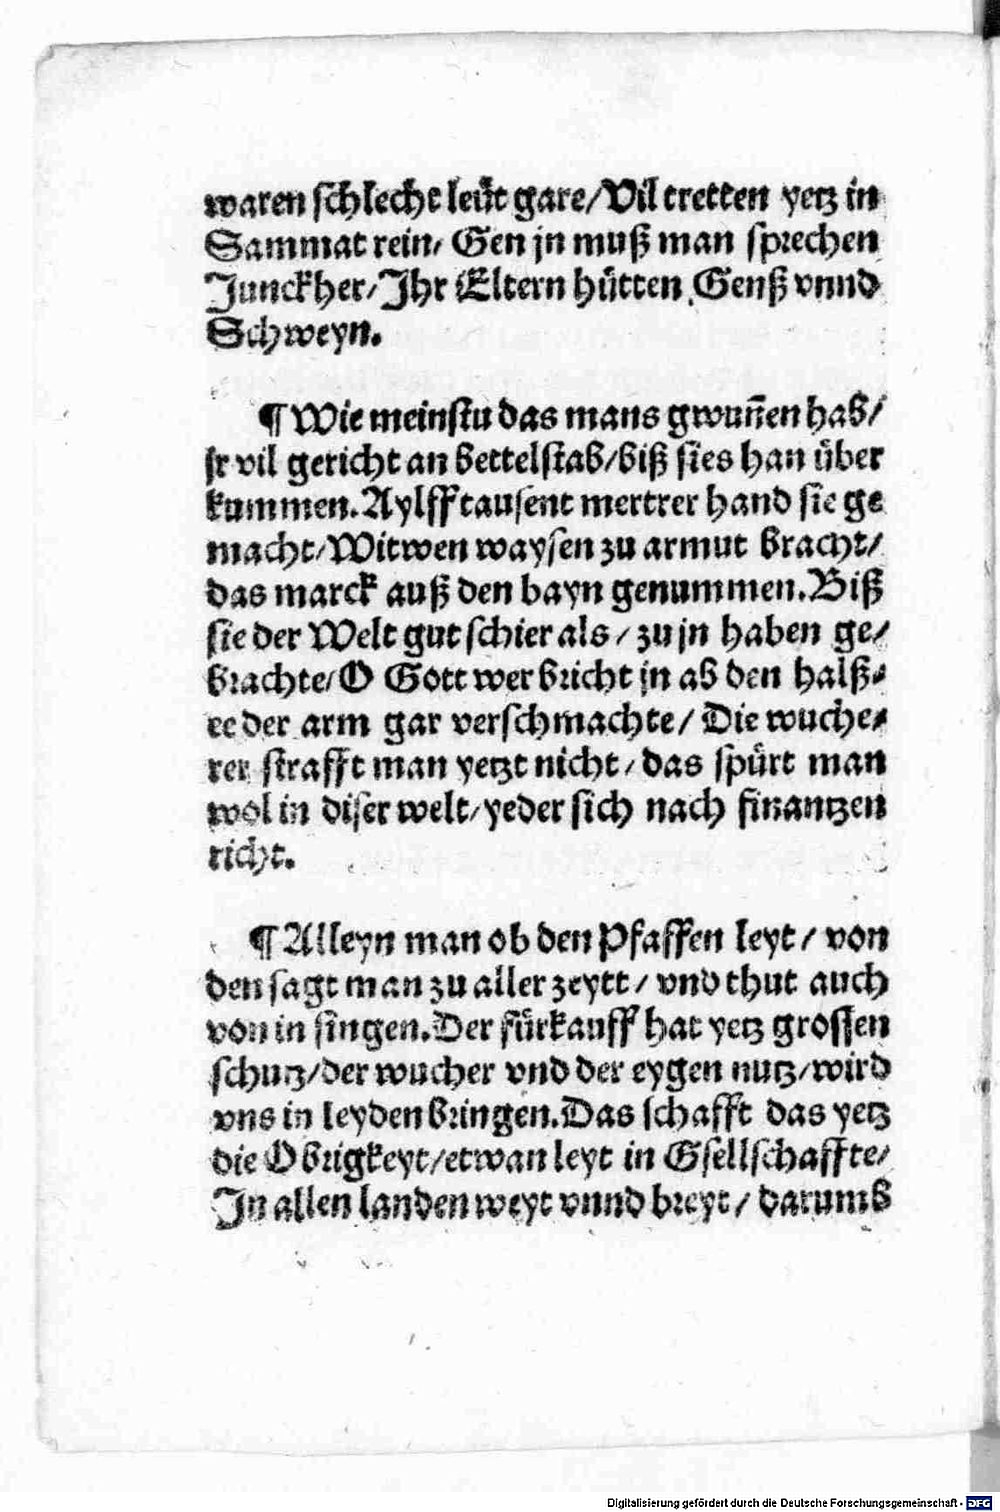 waren schlecht leüt gare/Vil tretten yetz in
Sammat rein/ Gen jn muß man sprechen
Junckher/Ihr Eltern hütten Genß vnnd
Schweyn.
¶ Wie meinstu das mans gwuñen hab/
jr vil gericht an bettelstab/biß sies han über
kummen. Aylff tausent mertrer hand sie ge
macht/Witwen waysen zu armut bracht/
das marck auß den bayn genummen. Biß
sie der Welt gut schier als/zu jn haben ge/
brachte/O Gott wer bricht jn ab den halß/
ee der arm gar verschmachte/ Die wuche/
rer strafft man yetzt nicht/das spürt man
wol in diser welt/yeder sich nach finantzen
richt.
¶ Alleyn man ob den Pfaffen leyt/ von
den sagt man zu aller zeytt/ vnd thut auch
von in singen. Der fürkauff hat yetz grossen
schutz/der wucher vnd der eygen nutz/wird
vns in leyden bringen. Das schafft das yetz
die Obrigkeyt/etwan leyt in Gsellschaffte/
In allen landen weyt vnnd breyt/ darumb
Digitalisierung gefördert durch die Deutsche Forschungsgemeinschaft - DFG